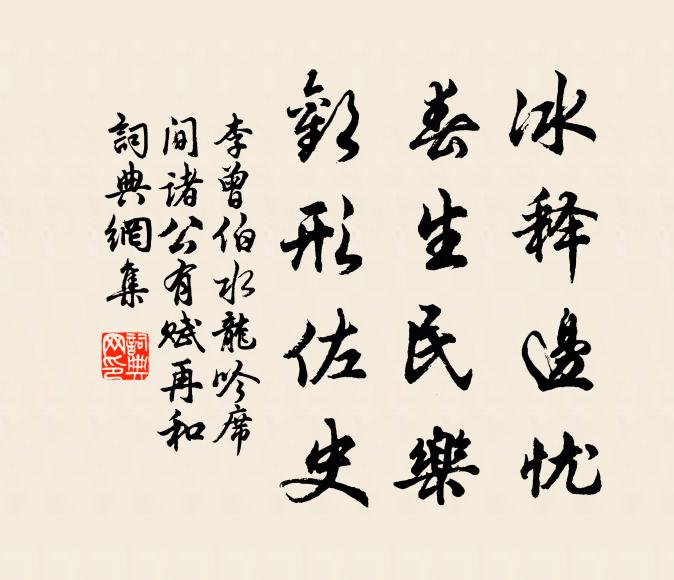 冰释邊忧
春生民樂
歡形佐史
李曾伯水龍吟席
间诸公有赋再和
詞典網集
詞典
网印